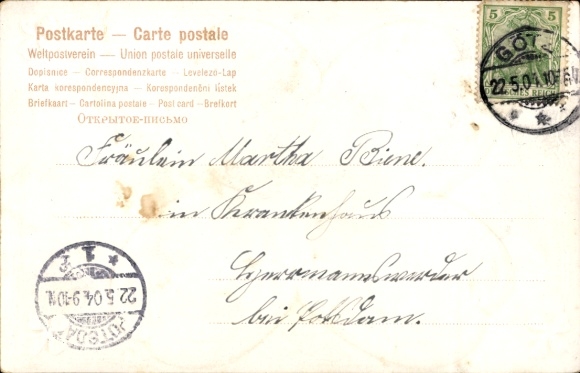 Postkarte — Carte postale
Weltpostverein — Union postale universelle
Dopisnice — Correspondenzkarte — Levelező-Lap
Karta korespondencyjna — Korespondenční lístek
Briefkaart — Cartolina postale — Post card — Brefkort
Открытое-письмо
5 5
GÖTZ
22.5.04.10-
REICH
Fräulein Martha Biene.
in Krankenhaus
Herrmannswerder
bei Potsdam.
* 1
22.5.04.9-10
POTSDA